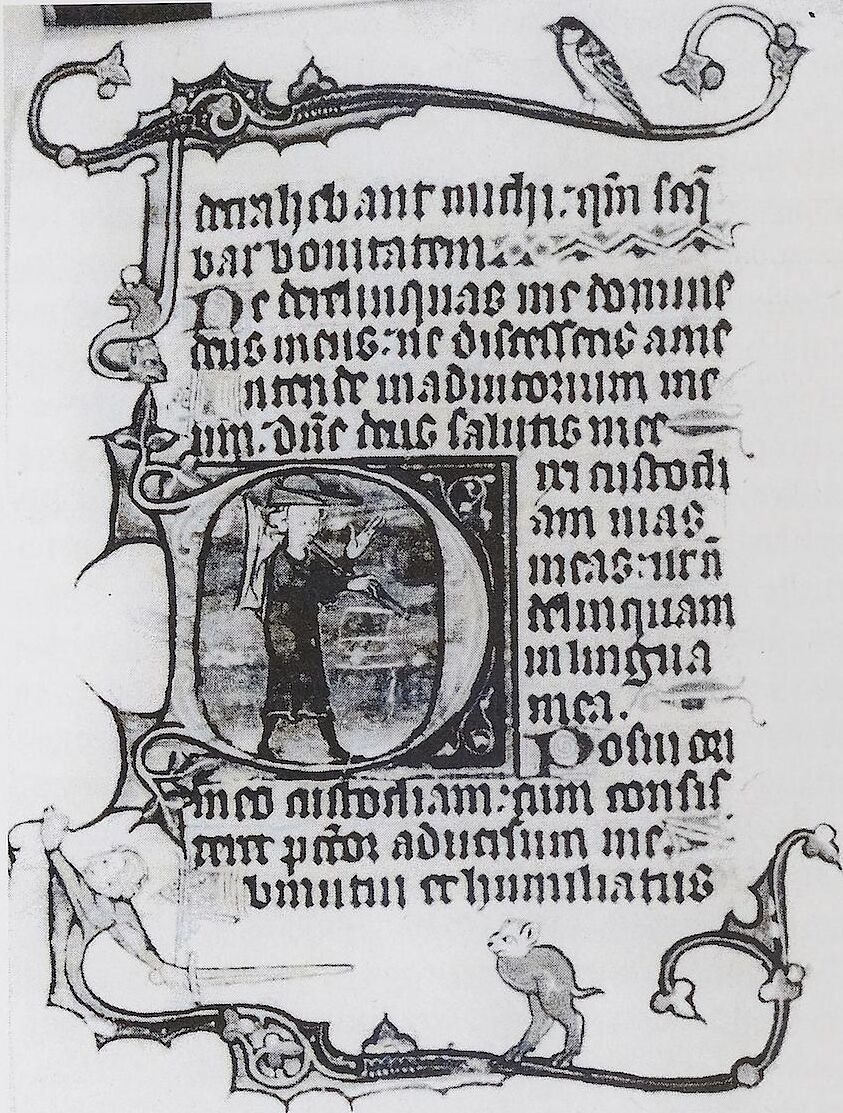 detrahebant michi: qm̄ seq̄
bar bonitatem
Ne derelinquas me domine
deus meus: ne discesseris a me
ntende in adiutorium me
um. dn̄e deus salutis mee
ixi custodi
am uias
meas: ut n̄
delinquam
in lingua
mea.
Posui ori
meo custodiam: cum consis
teret pc̄cōr aduersum me.
bmutui et humiliatus